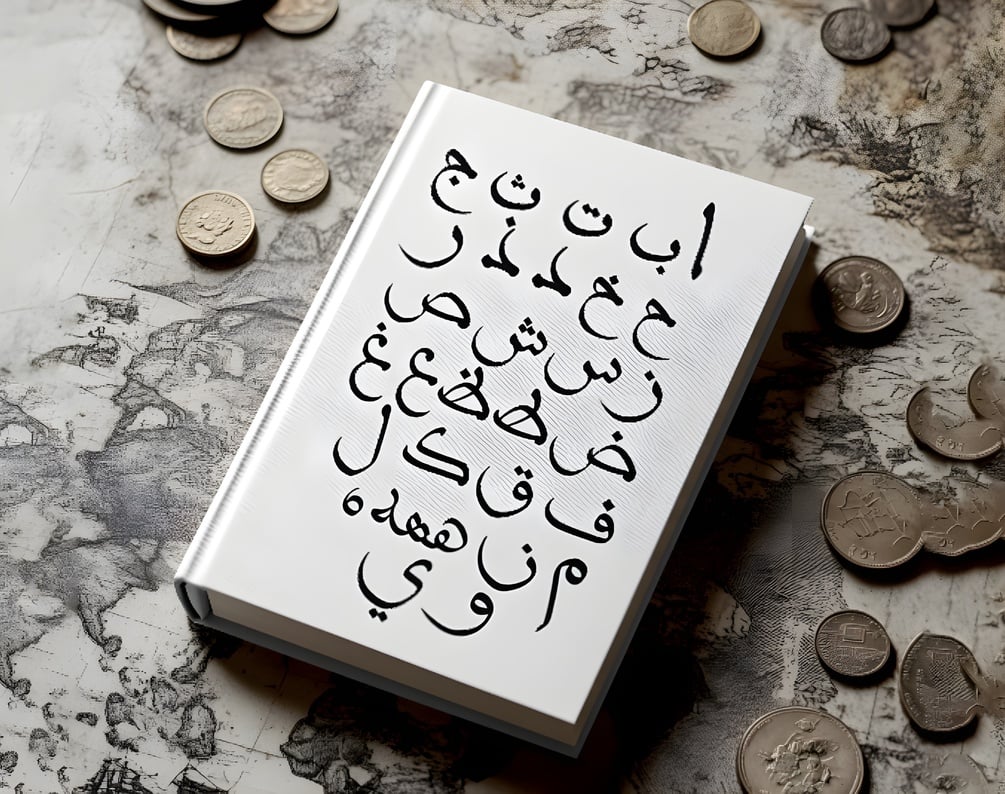 ا ب ت ث ج
ح خ د ذ ر
ز س ش ص
ض ط ظ ع غ
ف ق ك ل
م ن ههه ه
و ي